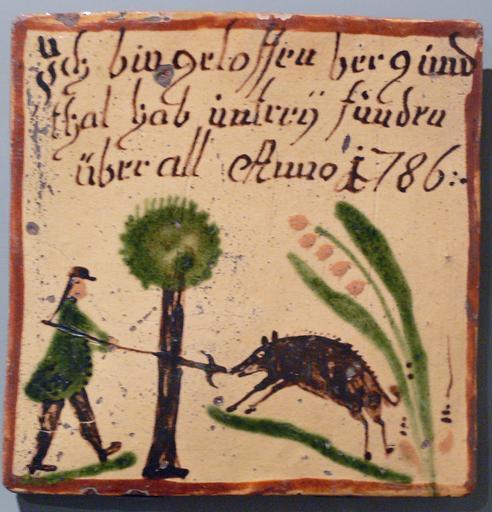 Ich bin geloffen berg ünd
thal hab üntreÿ fünden
über all Anno 1786:.